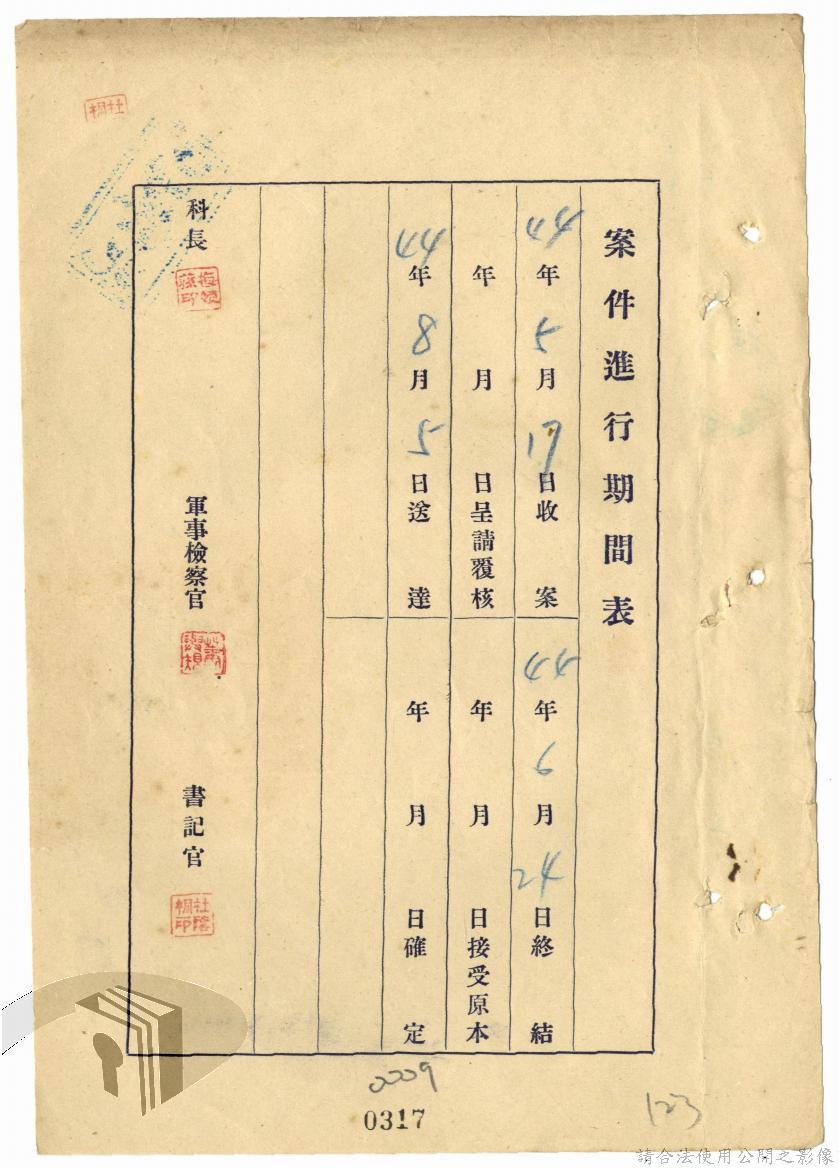 案件進行期間表
44年5月17日收案
44年6月24日終結
年月日呈請覆核
年月日接受原本
44年8月5日送達
年月日確定
科長
軍事檢察官
書記官
杜蔭桐印
0009
0317
123
請合法使用公開之影像